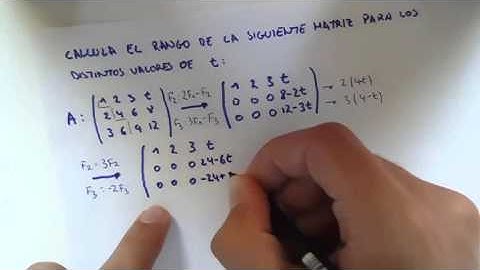 CALCULA EL RANGO DE LA SIGUIENTE MATRIZ PARA LOS
DISTINTOS VALORES DE t:
A: ( 1 2 3 t
2 4 6 8
3 6 9 12 ) F₂-2F₁-F₂ F₃ 3F₁-F₃ → ( 1 2 3 t
0 0 0 8-2t
0 0 0 12-3t ) → 2(4t)
→ 3(4-t)
F₂-3F₂
F₃=-2F₃ → ( 1 2 3 t
0 0 0 24-6t
0 0 0 -24+